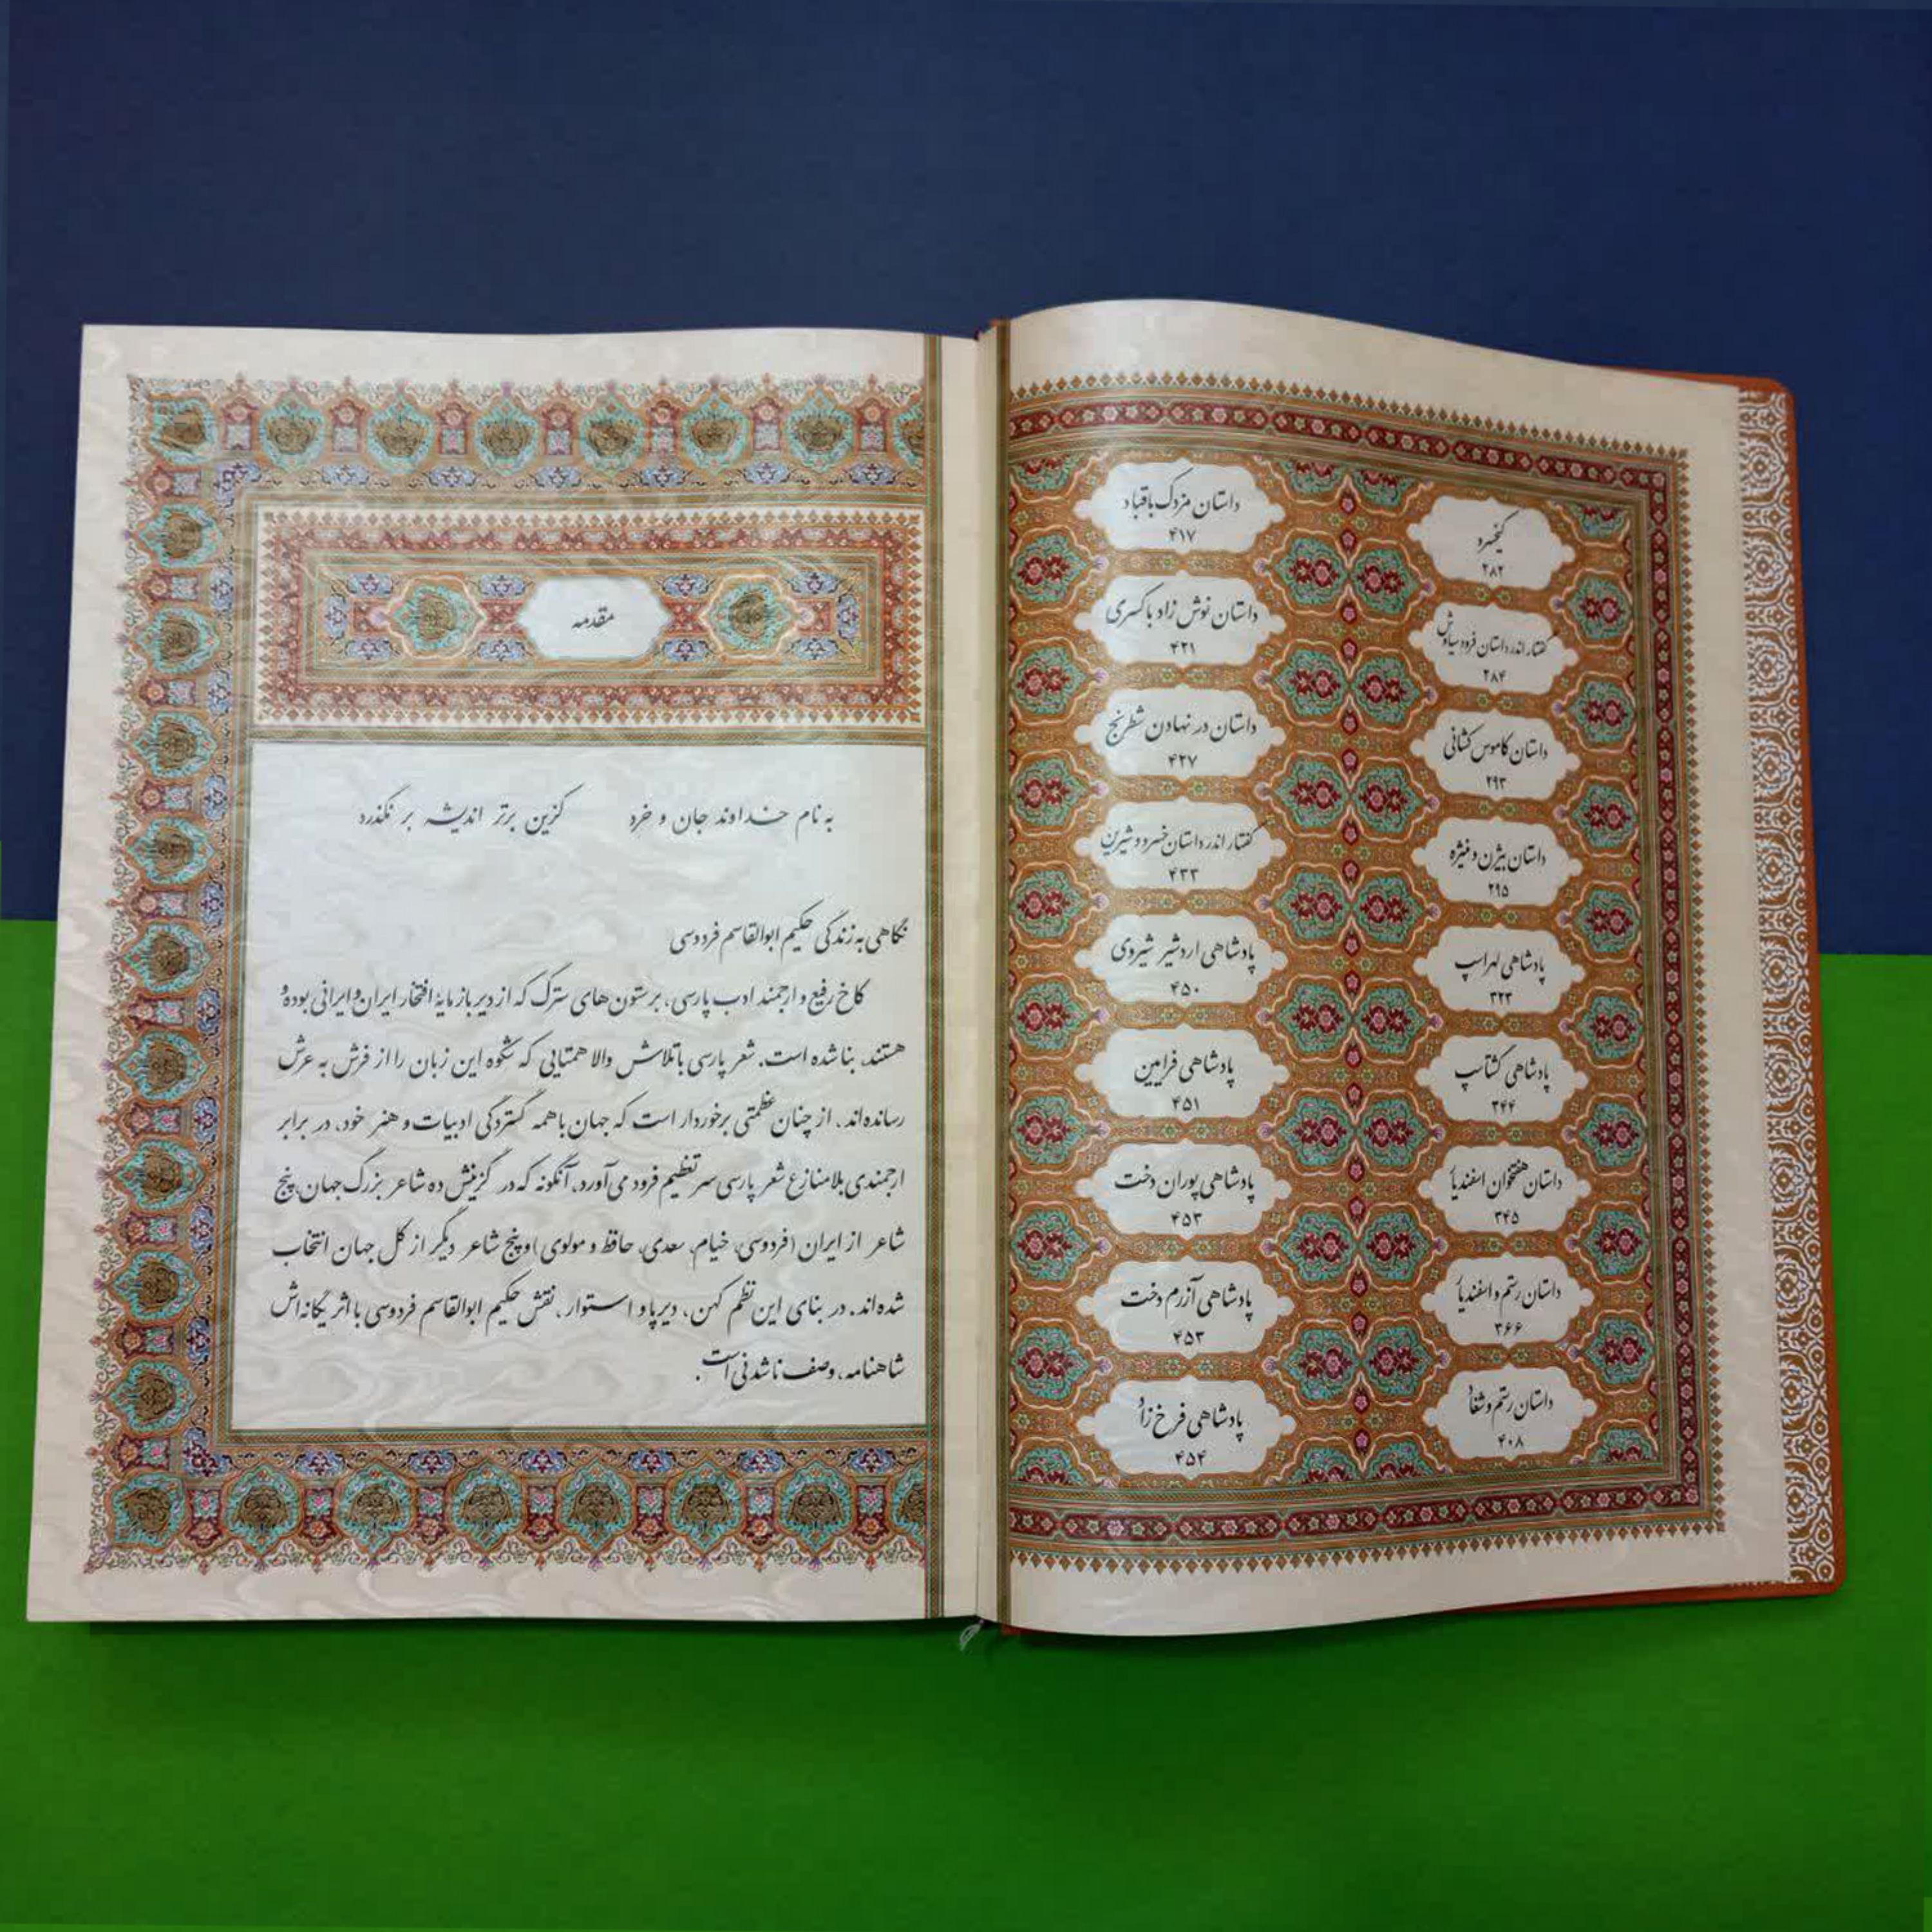 کیخسرو
۲۸۲
گفتار اندر داستان فرود سیاوش
۲۸۴
داستان کاموس کشانی
۲۹۳
داستان بیژن و منیژه
۲۹۵
پادشاهی لهراسپ
۳۲۳
پادشاهی گشتاسپ
۳۴۴
داستان هفتخوان اسفندیار
۳۴۵
داستان رستم و اسفندیار
۳۶۶
داستان رستم و شغاد
۴۰۸
داستان مزدک با قباد
۴۱۷
داستان نوش زاد با کسری
۴۲۱
داستان در نهادن شطرنج
۴۲۷
گفتار اندر داستان خسرو و شیرین
۴۳۳
پادشاهی اردشیر شیروی
۴۵۰
پادشاهی فرایین
۴۵۱
پادشاهی پوران دخت
۴۵۳
پادشاهی آزرم دخت
۴۵۳
پادشاهی فرخ زاد
۴۵۴
مقدمه
به نام خداوند جان و خرد کزین برتر اندیشه بر نگذرد
نگاهی به زندگی حکیم ابوالقاسم فردوسی
کاخ رفیع و ارجمند ادب پارسی، بر ستون‌های سترگ که از دیرباز مایهٔ افتخار ایران و ایرانی بوده و
هستند، بنا شده است. شعر پارسی با تلاش والا همتایی که شکوه این زبان را از فرش به عرش
رسانده‌اند، از چنان عظمتی برخوردار است که جهان با همه گستردگی ادبیات و هنر خود، در برابر
ارجمندی بلامنازع شعر پارسی سر تعظیم فرود می‌آورد، آنگونه که در گزینش ده شاعر بزرگ جهان، پنج
شاعر از ایران (فردوسی، خیام، سعدی، حافظ و مولوی) و پنج شاعر دیگر از کل جهان انتخاب
شده‌اند. در بنای این نظم کهن، دیرپا و استوار، نقش حکیم ابوالقاسم فردوسی با اثر یگانه‌اش
شاهنامه، وصف ناشدنی است.